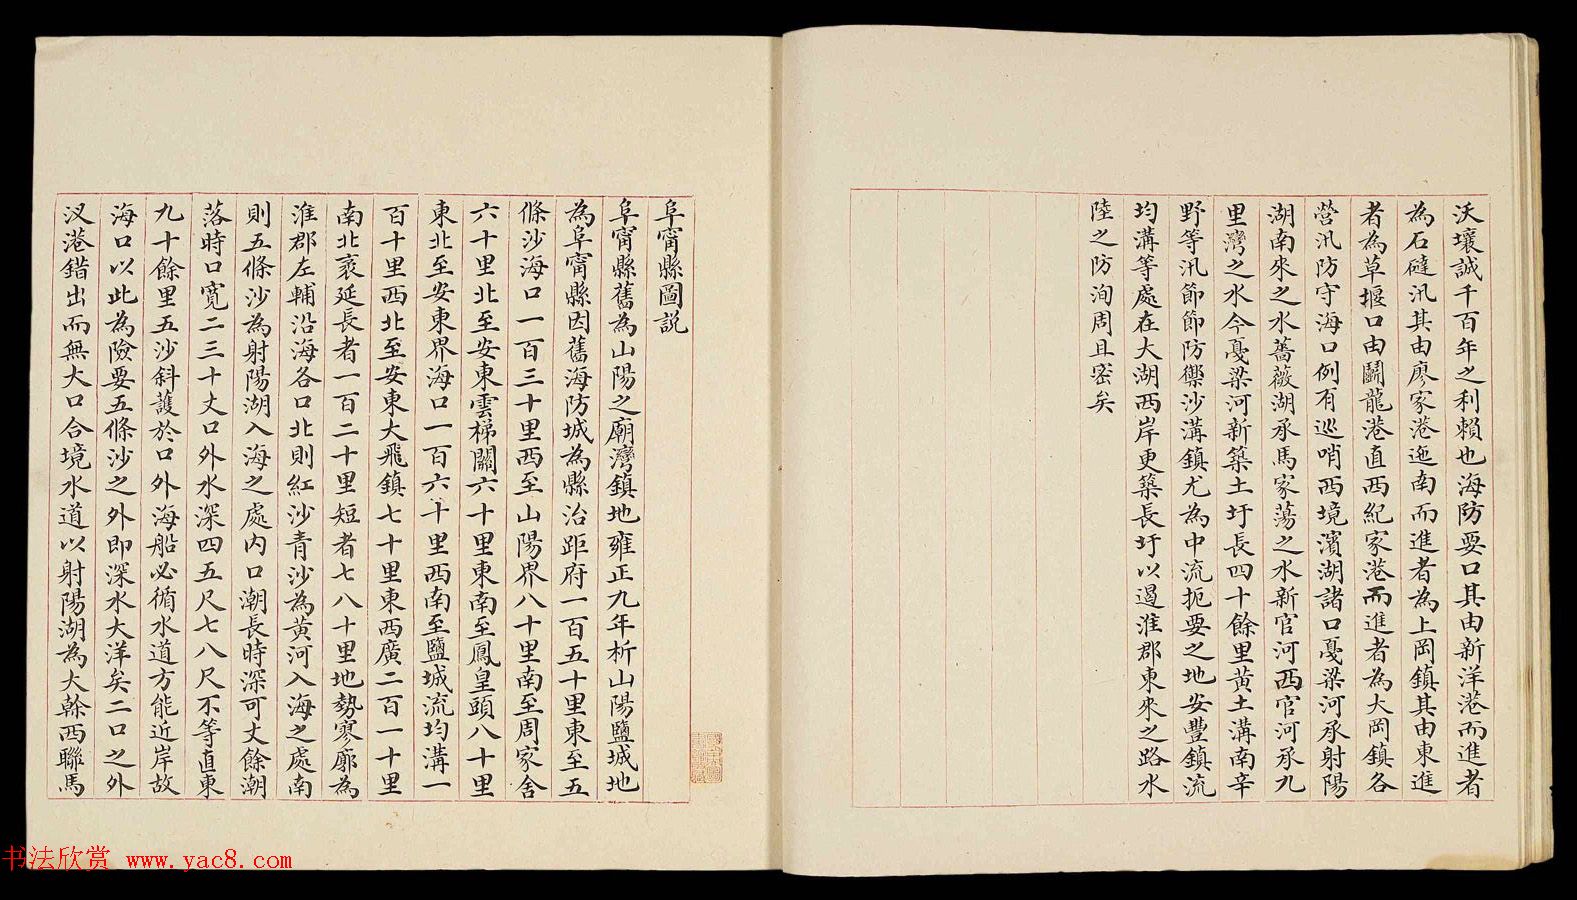 沃壤誠千百年之利賴也海防要口其由新洋港而進者
為石䃮汛其由廖家港迤南而進者為上岡鎮其由東進
者為草堰口由鬭龍港直西紀家港而進者為大岡鎮各
營汛防守海口例有巡哨西境濱湖諸口戞梁河承射陽
湖南來之水薔薇湖承馬家蕩之水新官河西官河承九
里灣之水今戞梁河新築土圩長四十餘里黄土溝南辛
野等汛節節防禦沙溝鎮尤為中流扼要之地安豐鎮流
均溝等處在大湖西岸更築長圩以遏淮郡東來之路水
陸之防洵周且密矣
阜甯縣圖説
阜甯縣舊為山陽之廟灣鎮地雍正九年析山陽鹽城地
為阜甯縣因舊海防城為縣治距府一百五十里東至五
條沙海口一百三十里西至山陽界八十里南至周家舍
六十里北至安東雲梯關六十里東南至鳳皇頭八十里
東北至安東界海口一百六十里西南至鹽城流均溝一
百十里西北至安東大飛鎮七十里東西廣二百一十里
南北袤延長者一百二十里短者七八十里地勢寥廓為
淮郡左輔沿海各口北則紅沙青沙為黄河入海之處南
則五條沙為射陽湖入海之處内口潮長時深可丈餘潮
落時口寬二三十丈口外水深四五尺七八尺不等直東
九十餘里五沙斜護於口外海船必循水道方能近岸故
海口以此為險要五條沙之外即深水大洋矣二口之外
汊港錯出而無大口合境水道以射陽湖為大榦西聯馬
书法欣赏 www.yac8.com